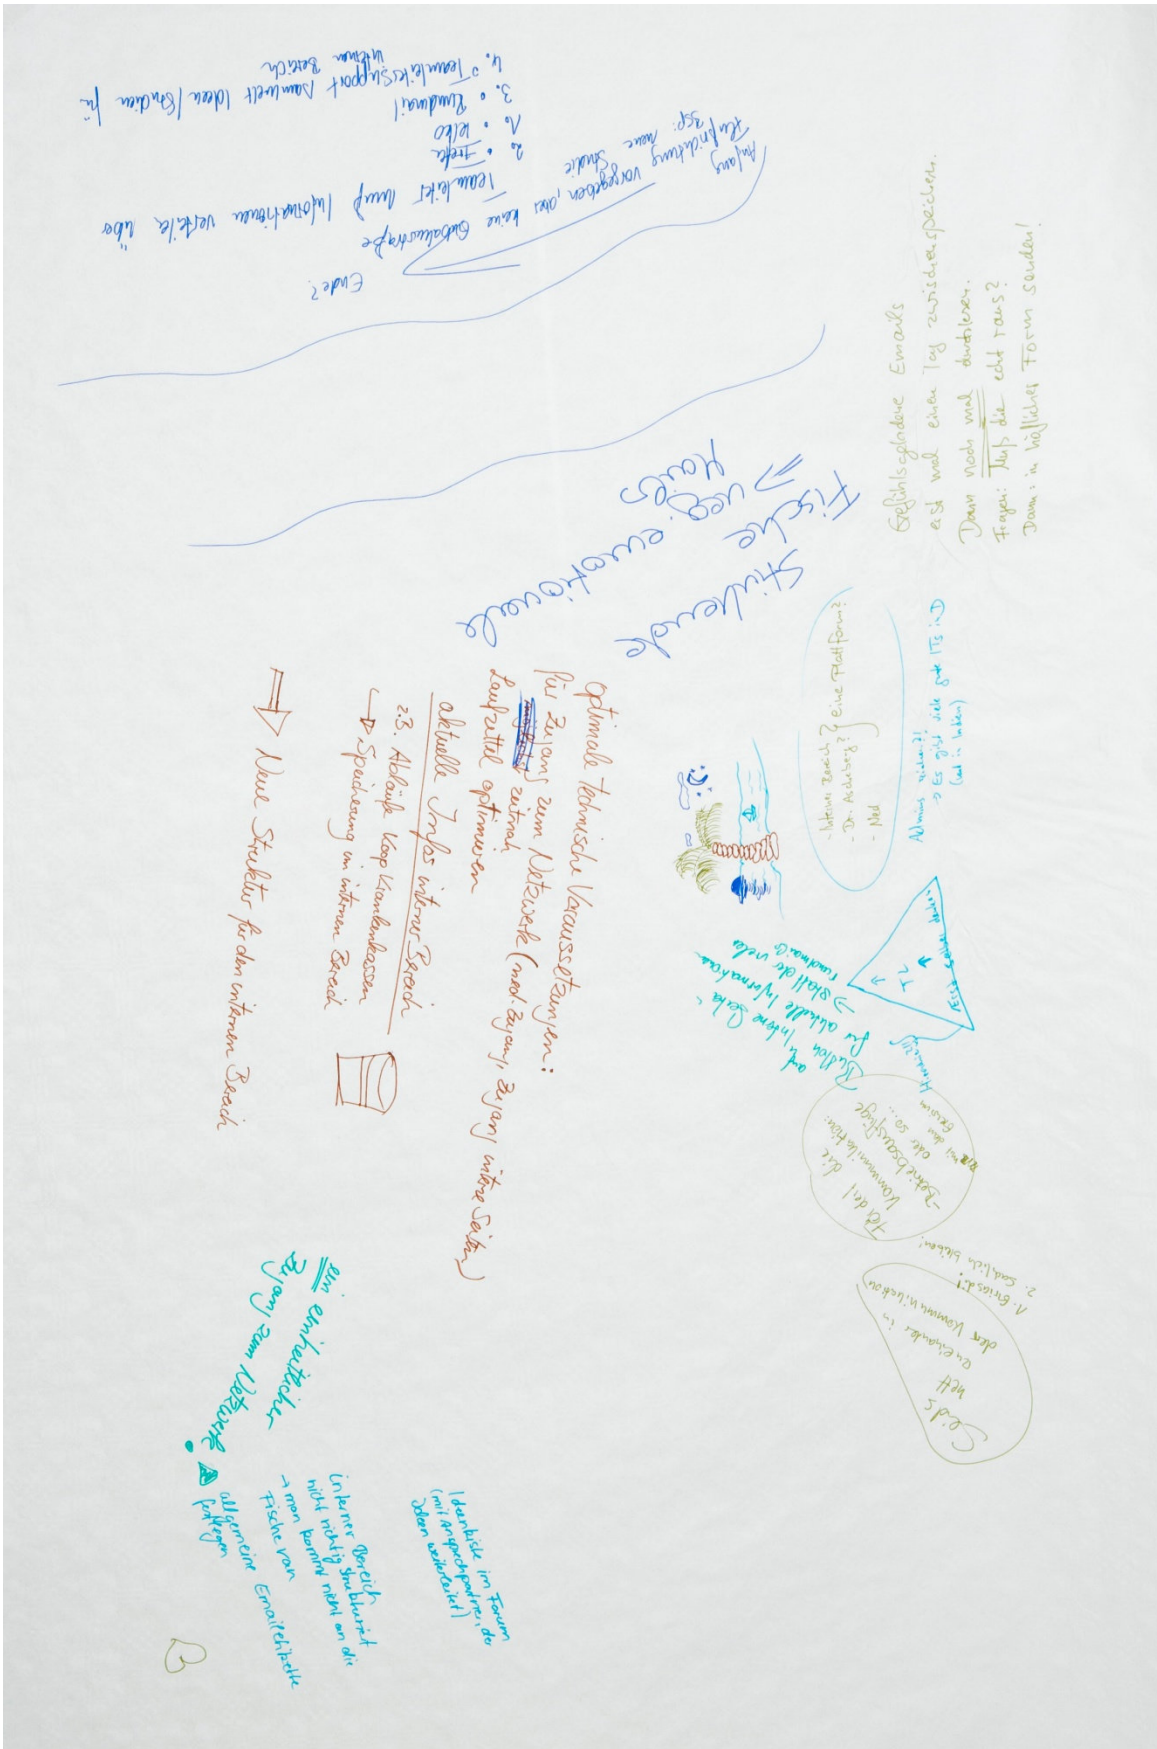 Anfang
Flußrichtung vorgegeben, aber keine
Bsp: neue Studie
Ende?
Teamleiter muß Informationen verteilen über
2. • Treffen
1. • Telko
3. • Rundmail
4. • Teamleitersupport sammelt Ideen/Studien für
internen Bereich
Gefühlsgeladene Emails
erst mal einen Tag zwischenspeichern.
Dann noch mal durchlesen.
Fragen: Muß die echt raus?
Dann: in höflicher Form senden!
Stinkende
Fische
⇒ neg. emotionale
Mails
- Interner Bereich?
- Dr. Ascheberg?
- Med
eine Plattform?
Admins reichen?!
→ Es gibt viele gute ITs in D
(und in Indien)
optimale technische Voraussetzungen:
für Zugang zum Netzwerk (med. Zugang, Zugang interne Seiten)
zeitnah
Laufzettel optimieren
aktuelle Infos interner Bereich
z.B. Abläufe Koop Krankenkassen
→ Speicherung im internen Bereich
⇒ Neue Struktur für den internen Bereich
TL
Erst selber denken
Button
auf interne Seite
für aktuelle Informationen
⇒ statt der vielen
rundmails
Fördert die
Kommunikation:
- Betriebsausflüge
oder so...
Seids
nett
zueinander in
der Kommunikation
1. Griasdi!
2. sachlich bleiben!
ein einheitlicher
Zugang zum Netzwerk!
allgemeine Emailetikette
festlegen
interner Bereich
nicht richtig strukturiert
→ man kommt nicht an die
Fische ran
Ideenkiste im Forum
(mit Ansprechpartner, der
Ideen weiterleitet)